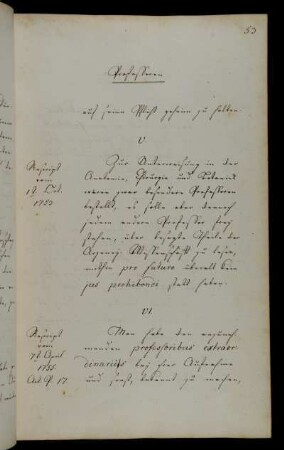 53
Professoren
auf seine Wahl geheim zu halten
V.
Rescript
vom
19. Oct.
1753
Zur Unterweisung in der
Anatomie, Chirurgie und Botanic
wären zwar besondere Professoren
bestellt, es solle aber dennoch
jedem andern Professor frey
stehen, über besagte Theile der
Arzney Wissenschaft zu lesen,
mithin pro futuro überall kein
jus prohibendi statt haben.
VI
Rescript
vom
7t April
1755.
Act. P. 17.
Man habe den
professoribus extraor
dinariis bey ihrer Aufnahme
und sonst, bekannt zu machen,